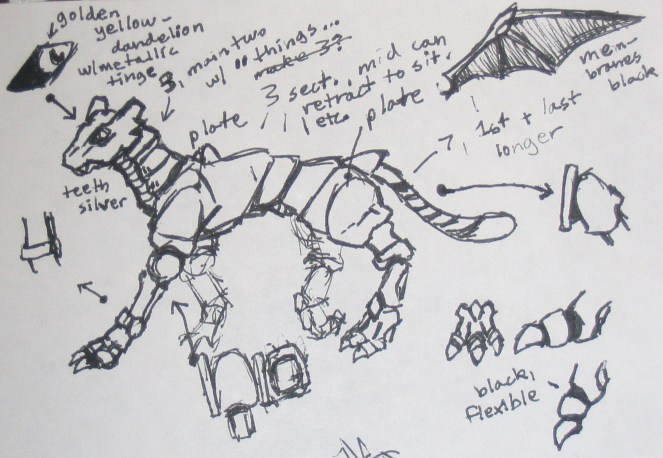 golden
yellow-
dandelion
w/metallic
tinge
3, main two
w/ " things...
make 3?
3 sect., mid can
retract to sit.
etc.
plate
plate
mem-
branes
black
7, 1st + last
longer
teeth
silver
black,
flexible